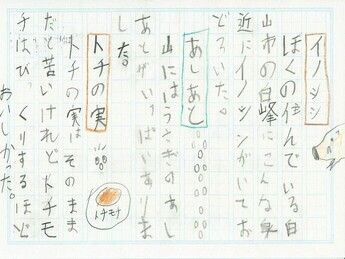 イノシシ
ぼくの住んでいる白
山市の白峰にこんな身
近にイノシシがいてお
どろいた。
あしあと
山にはうさぎのあし
あとがいっぱいありま
した。
トチの実
トチの実はそのまま
だと苦いけれどトチモ
チはびっくりするほど
おいしかった。
トチモチ